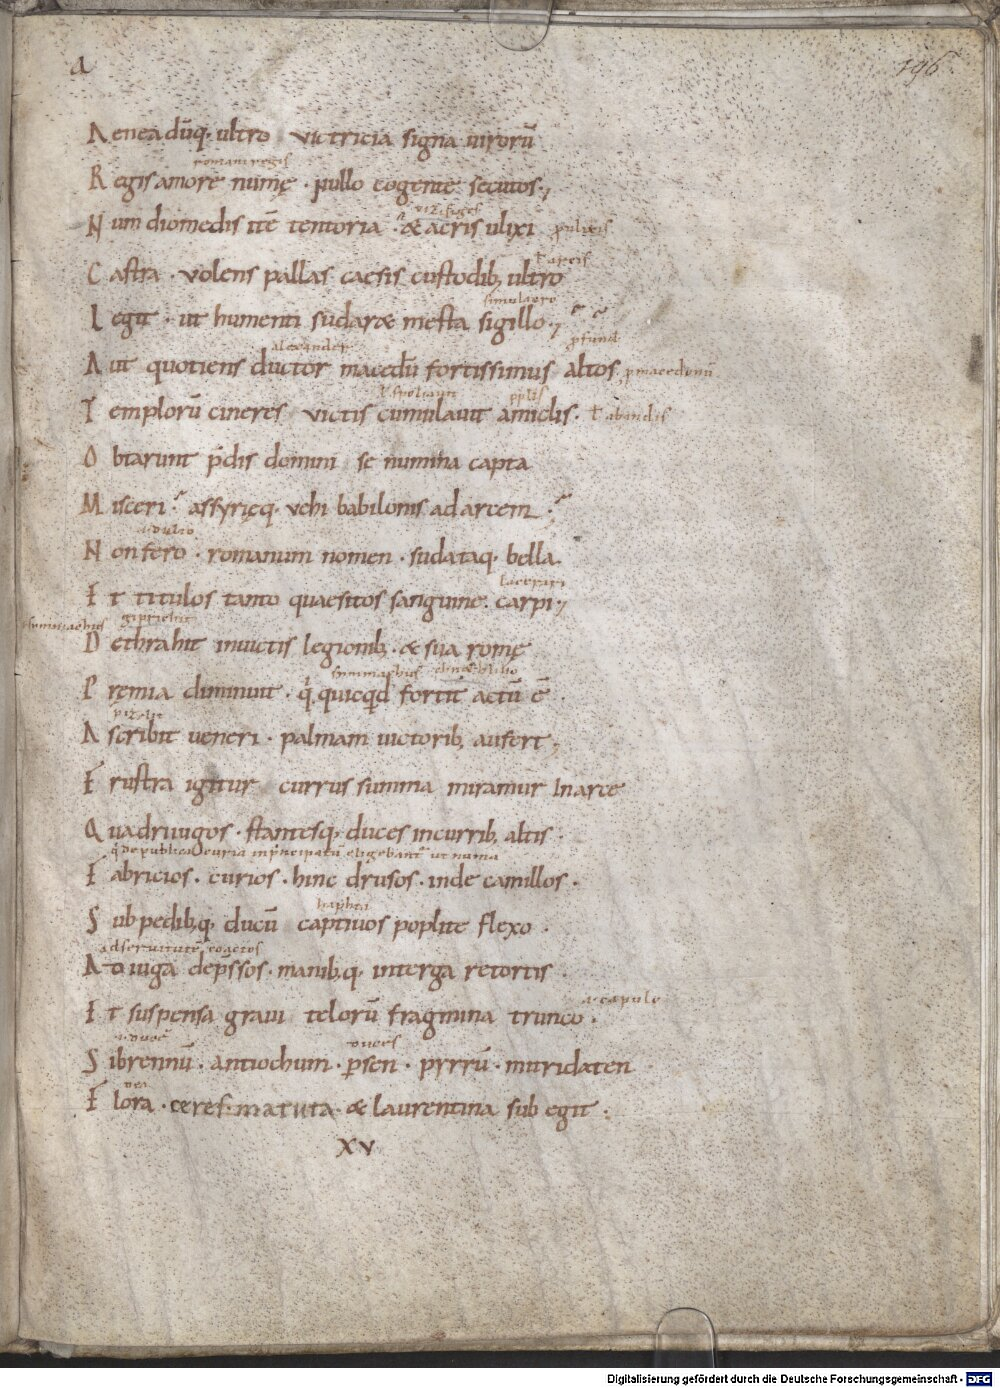 a
196
Aeneadūq· ultro victricia signa virorū
romani regis
Regis amore numę · pullo cogente secutos·;
Num diomedis itē tentoria · & acris ulixi p ulixis
t arcis
Castra · volens pallas caesis custodib; ultro
simulacro
Legit · ut humenti sudaret mesta sigillo·;
Alexander
Aut quotiens ductor macedū fortissimus altos p macedonū
t spoliavit
Templorū cineres victis cumulavit amiclis· t abandis
Obtarunt p̄dis domini se numina capta
Misceri· assyrięq· vehi babilonis ad arcem
Non fero · romanum nomen · sudataq· bella·
Et titulos tanto quaesitos sanguine· carpi·;
Dethrahit invictis legionib; · & sua romę
simmachus
Pręmia diminuit · q quicqd fortit actū ē
Ascribit veneri · palmam victorib; aufert·;
Frustra igitur currus summa miramur in arce
Quadriiugos · stantesq; duces in currib; altis·
Fabricios · curios · hinc drusos · inde camillos·
Sub pedib; q· ducū captivos poplite flexo ·
ad servitutē coactos
Ad iuga dep̄ssos · manib; q· in terga retortis
a capulo
Et suspensa gravi telorū fragmina trunco ·
duces
Si brennū · antiochum · persen · pyrrū · mitridaten
dea
Flora · ceres· matuta · & laurentina subegit·;
xv
Digitalisierung gefördert durch die Deutsche Forschungsgemeinschaft - DFG